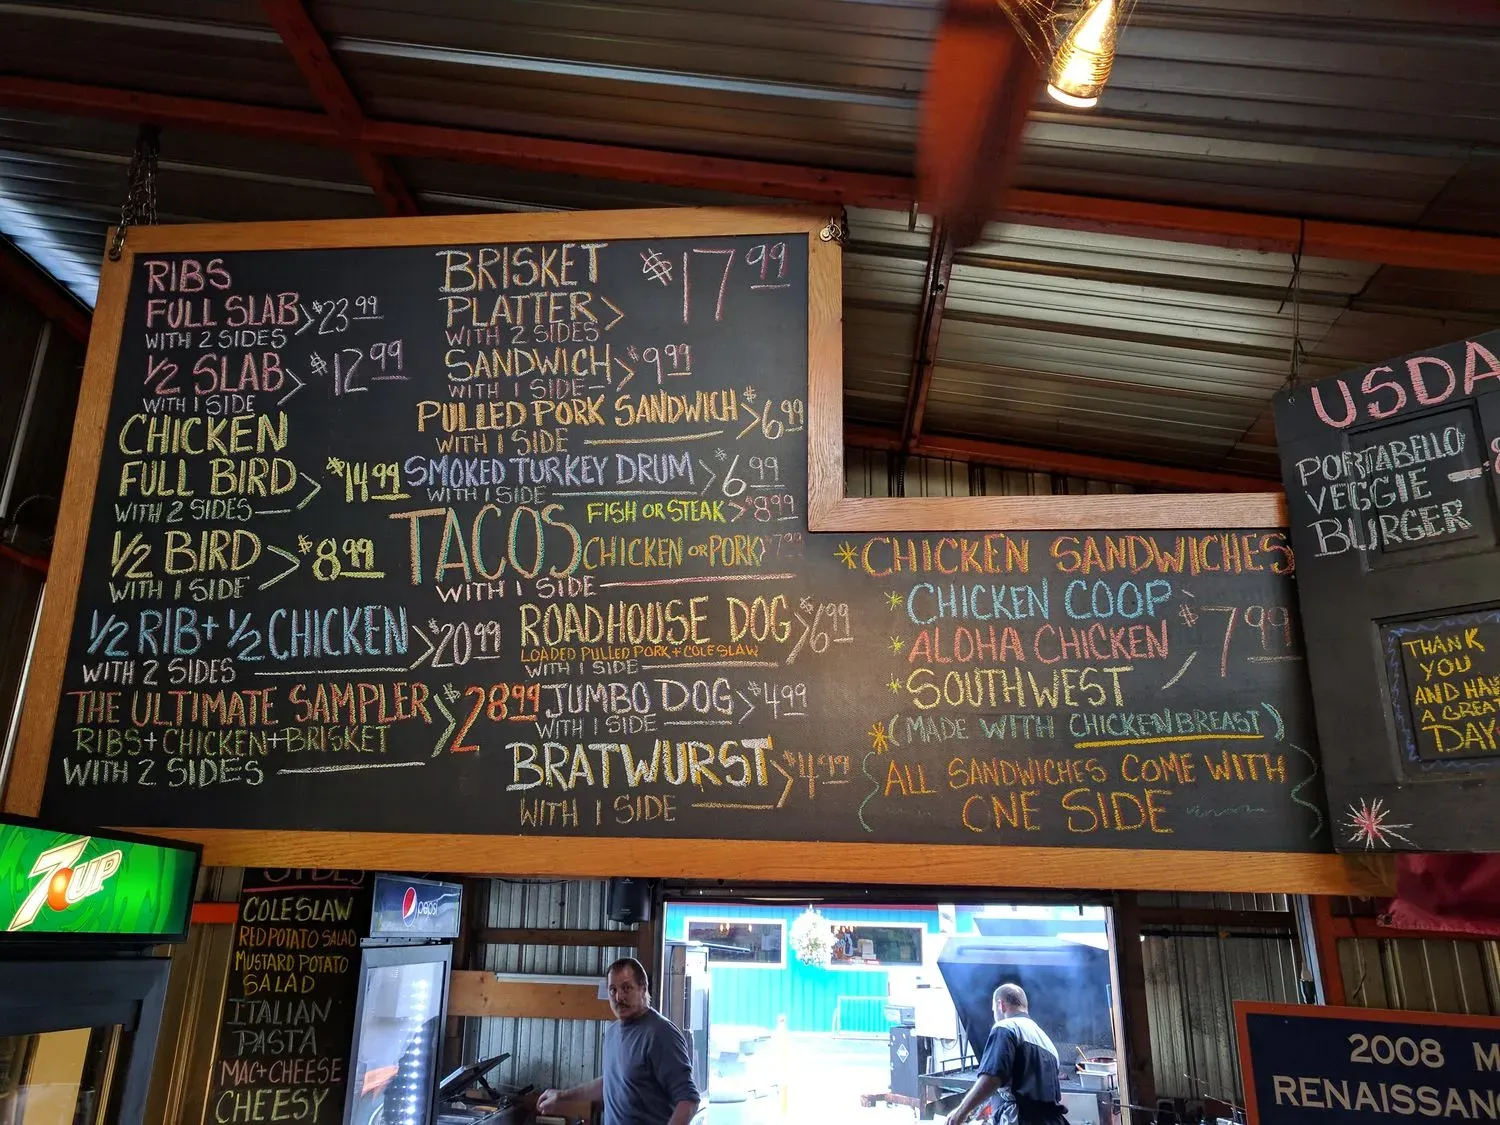 RIBS
FULL SLAB> $23.99
WITH 2 SIDES
1/2 SLAB> $12.99
WITH 1 SIDE
CHICKEN
FULL BIRD> $14.99
WITH 2 SIDES
1/2 BIRD> $8.99
WITH 1 SIDE
1/2 RIB + 1/2 CHICKEN> $20.99
WITH 2 SIDES
THE ULTIMATE SAMPLER> $28.99
RIBS + CHICKEN + BRISKET
WITH 2 SIDES
BRISKET $17.99
PLATTER>
WITH 2 SIDES
SANDWICH> $9.99
WITH 1 SIDE
PULLED PORK SANDWICH> $6.99
WITH 1 SIDE
SMOKED TURKEY DRUM> $6.99
WITH 1 SIDE
TACOS
FISH OR STEAK> $8.99
CHICKEN OR PORK> $7.99
WITH 1 SIDE
ROADHOUSE DOG> $6.99
LOADED PULLED PORK + COLESLAW
WITH 1 SIDE
JUMBO DOG> $4.99
WITH 1 SIDE
BRATWURST> $4.99
WITH 1 SIDE
*CHICKEN SANDWICHES
*CHICKEN COOP
*ALOHA CHICKEN $7.99
*SOUTHWEST
*(MADE WITH CHICKEN BREAST)
ALL SANDWICHES COME WITH
ONE SIDE
USDA
PORTABELLO
VEGGIE
BURGER
THANK
YOU
AND HAVE
A GREAT
DAY
7UP
SIDES
COLESLAW
RED POTATO SALAD
MUSTARD POTATO
SALAD
ITALIAN
PASTA
MAC+CHEESE
CHEESY
pepsi
2008 M
RENAISSAN